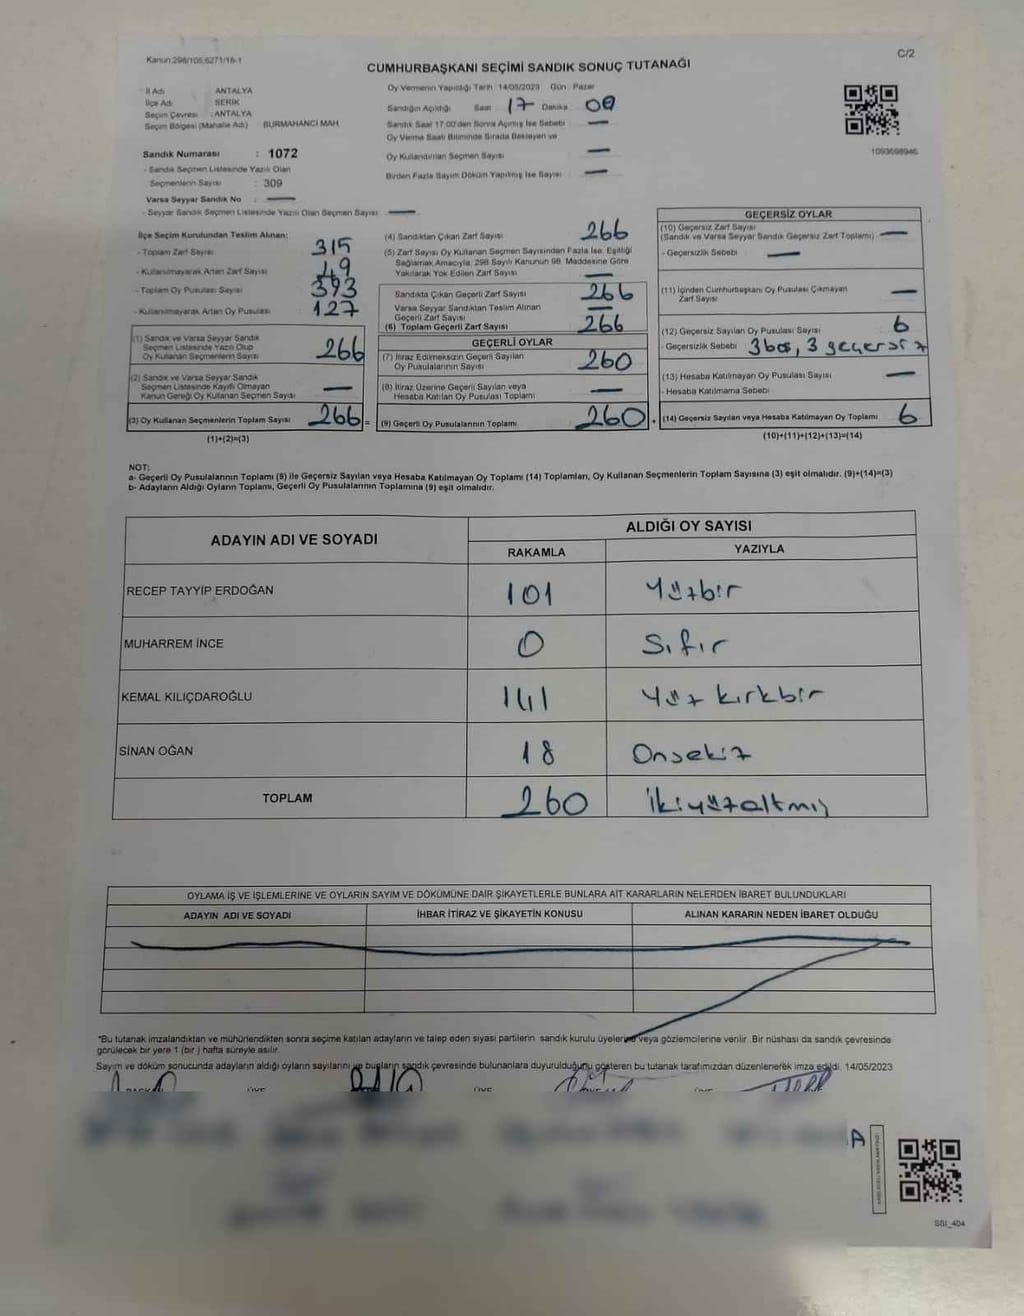 Kanun:298/105,6271/18-1
C/2
CUMHURBAŞKANI SEÇİMİ SANDIK SONUÇ TUTANAĞI
İl Adı : ANTALYA
İlçe Adı : SERİK
Seçim Çevresi : ANTALYA
Seçim Bölgesi (Mahalle Adı) : BURMAHANCI MAH.
Sandık Numarası : 1072
- Sandık Seçmen Listesinde Yazılı Olan
Seçmenlerin Sayısı : 309
Varsa Seyyar Sandık No : —
- Seyyar Sandık Seçmen Listesinde Yazılı Olan Seçmen Sayısı : —
Oy Vermenin Yapıldığı Tarih : 14/05/2023 Gün : Pazar
Sandığın Açıldığı Saat 17 Dakika : 00
Sandık Saat 17.00'den Sonra Açılmış İse Sebebi : —
Oy Verme Saati Bitiminde Sırada Bekleyen ve
Oy Kullandırılan Seçmen Sayısı : —
Birden Fazla Sayım Döküm Yapılmış İse Sayısı : —
1093698946
İlçe Seçim Kurulundan Teslim Alınan:
- Toplam Zarf Sayısı : 315
- Kullanılmayarak Artan Zarf Sayısı : 49
- Toplam Oy Pusulası Sayısı : 393
- Kullanılmayarak Artan Oy Pusulası : 127
(1) Sandık ve Varsa Seyyar Sandık
Seçmen Listesinde Yazılı Olup
Oy Kullanan Seçmenlerin Sayısı : 266
(2) Sandık ve Varsa Seyyar Sandık
Seçmen Listesinde Kayıtlı Olmayan
Kanun Gereği Oy Kullanan Seçmen Sayısı : —
(3) Oy Kullanan Seçmenlerin Toplam Sayısı : 266 =
(1)+(2)=(3)
(4) Sandıktan Çıkan Zarf Sayısı : 266
(5) Zarf Sayısı Oy Kullanan Seçmen Sayısından Fazla İse, Eşitliği
Sağlamak Amacıyla, 298 Sayılı Kanunun 98. Maddesine Göre
Yakılarak Yok Edilen Zarf Sayısı : —
Sandıkta Çıkan Geçerli Zarf Sayısı : 266
Varsa Seyyar Sandıktan Teslim Alınan
Geçerli Zarf Sayısı : —
(6) Toplam Geçerli Zarf Sayısı : 266
GEÇERLİ OYLAR
(7) İtiraz Edilmeksizin Geçerli Sayılan
Oy Pusulalarının Sayısı : 260
(8) İtiraz Üzerine Geçerli Sayılan veya
Hesaba Katılan Oy Pusulası Toplamı : —
(9) Geçerli Oy Pusulalarının Toplamı : 260 +
GEÇERSİZ OYLAR
(10) Geçersiz Zarf Sayısı
(Sandık ve Varsa Seyyar Sandık Geçersiz Zarf Toplamı) : —
- Geçersizlik Sebebi : —
(11) İçinden Cumhurbaşkanı Oy Pusulası Çıkmayan
Zarf Sayısı : —
(12) Geçersiz Sayılan Oy Pusulası Sayısı : 6
- Geçersizlik Sebebi : 3 boş, 3 geçersiz
(13) Hesaba Katılmayan Oy Pusulası Sayısı : —
- Hesaba Katılmama Sebebi :
(14) Geçersiz Sayılan veya Hesaba Katılmayan Oy Toplamı : 6
(10)+(11)+(12)+(13)=(14)
NOT:
a- Geçerli Oy Pusulalarının Toplamı (9) ile Geçersiz Sayılan veya Hesaba Katılmayan Oy Toplamı (14) Toplamları, Oy Kullanan Seçmenlerin Toplam Sayısına (3) eşit olmalıdır. (9)+(14)=(3)
b- Adayların Aldığı Oyların Toplamı, Geçerli Oy Pusulalarının Toplamına (9) eşit olmalıdır.
ADAYIN ADI VE SOYADI ALDIĞI OY SAYISI
RAKAMLA YAZIYLA
RECEP TAYYİP ERDOĞAN 101 Yüzbir
MUHARREM İNCE 0 Sıfır
KEMAL KILIÇDAROĞLU 141 Yüz kırkbir
SİNAN OĞAN 18 Onsekiz
TOPLAM 260 İkiyüzaltmış
OYLAMA İŞ VE İŞLEMLERİNE VE OYLARIN SAYIM VE DÖKÜMÜNE DAİR ŞİKAYETLERLE BUNLARA AİT KARARLARIN NELERDEN İBARET BULUNDUKLARI
ADAYIN ADI VE SOYADI İHBAR İTİRAZ VE ŞİKAYETİN KONUSU ALINAN KARARIN NEDEN İBARET OLDUĞU
*Bu tutanak imzalandıktan ve mühürlendikten sonra seçime katılan adayların ve talep eden siyasi partilerin sandık kurulu üyelerine veya gözlemcilerine verilir. Bir nüshası da sandık çevresinde
görülecek bir yere 1 (bir) hafta süreyle asılır.
Sayım ve döküm sonucunda adayların aldığı oyların sayılarını ve bunların sandık çevresinde bulunanlara duyurulduğunu gösteren bu tutanak tarafımızdan düzenlenerek imza edildi. 14/05/2023
A
SSI_404